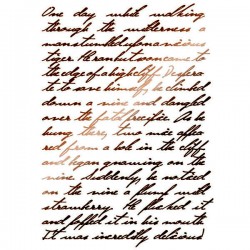 One day while walking
through the wilderness a
man stumbled upon a vicious
tiger. He ran but soon came to
the edge of a high cliff. Despera
te to save himself, he climbed
down a vine and dangled
over the fatal precipice. As he
hung there, two mice after
red from a hole in the cliff
and began gnawing on the
vine. Suddenly, he noticed
on the vine a plump wild
strawberry. He plucked it
and popped it in his mouth.
It was incredibly delicious!